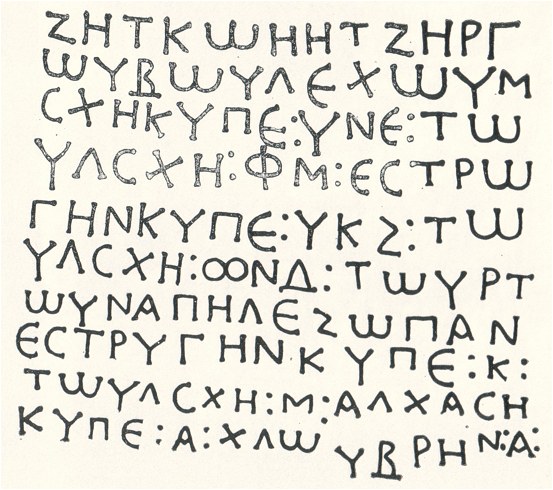 ΖΗΤΚΩΗΗΤΖΗΡΓ
ΩΥΒΩΥΛΕΧΩΥΜ
ϹΧΗΚΥΠΕ:ΥΝΕ:ΤΩ
ΥΛϹΧΗ:ΦΜ:ΕϹΤΡΩ
ΓΗΝΚΥΠΕ:ΥΚΖ:ΤΩ
ΥΛϹΧΗ:ΟΟΝΔ:ΤΩΥΡΤ
ΩΥΝΑΠΗΛΕΖΩΠΑΝ
ΕϹΤΡΥΓΗΝΚΥΠΕ:Κ:
ΤΩΥΛϹΧΗ:Μ:ΑΛΧΑϹΗ
ΚΥΠΕ:Α:ΧΛΩΥΒΡΗΝ:Α: